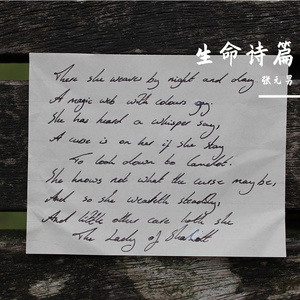 生命诗篇
张元男
There she weaves by night and day
A magic web with colours gay.
She has heard a whisper say,
A curse is on her if she stay
To look down to Camelot.
She knows not what the curse may be,
And so she weaveth steadily,
And little other care hath she
The Lady of Shalott